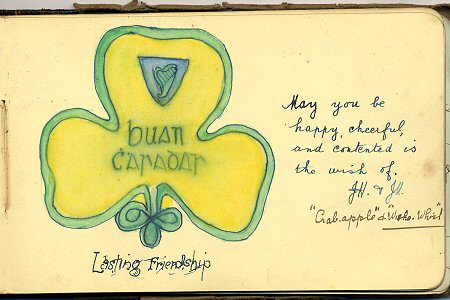 buan
Caradar
Lasting Friendship
May you be
happy, cheerful,
and contented is
the wish of.
"Crabapple" &